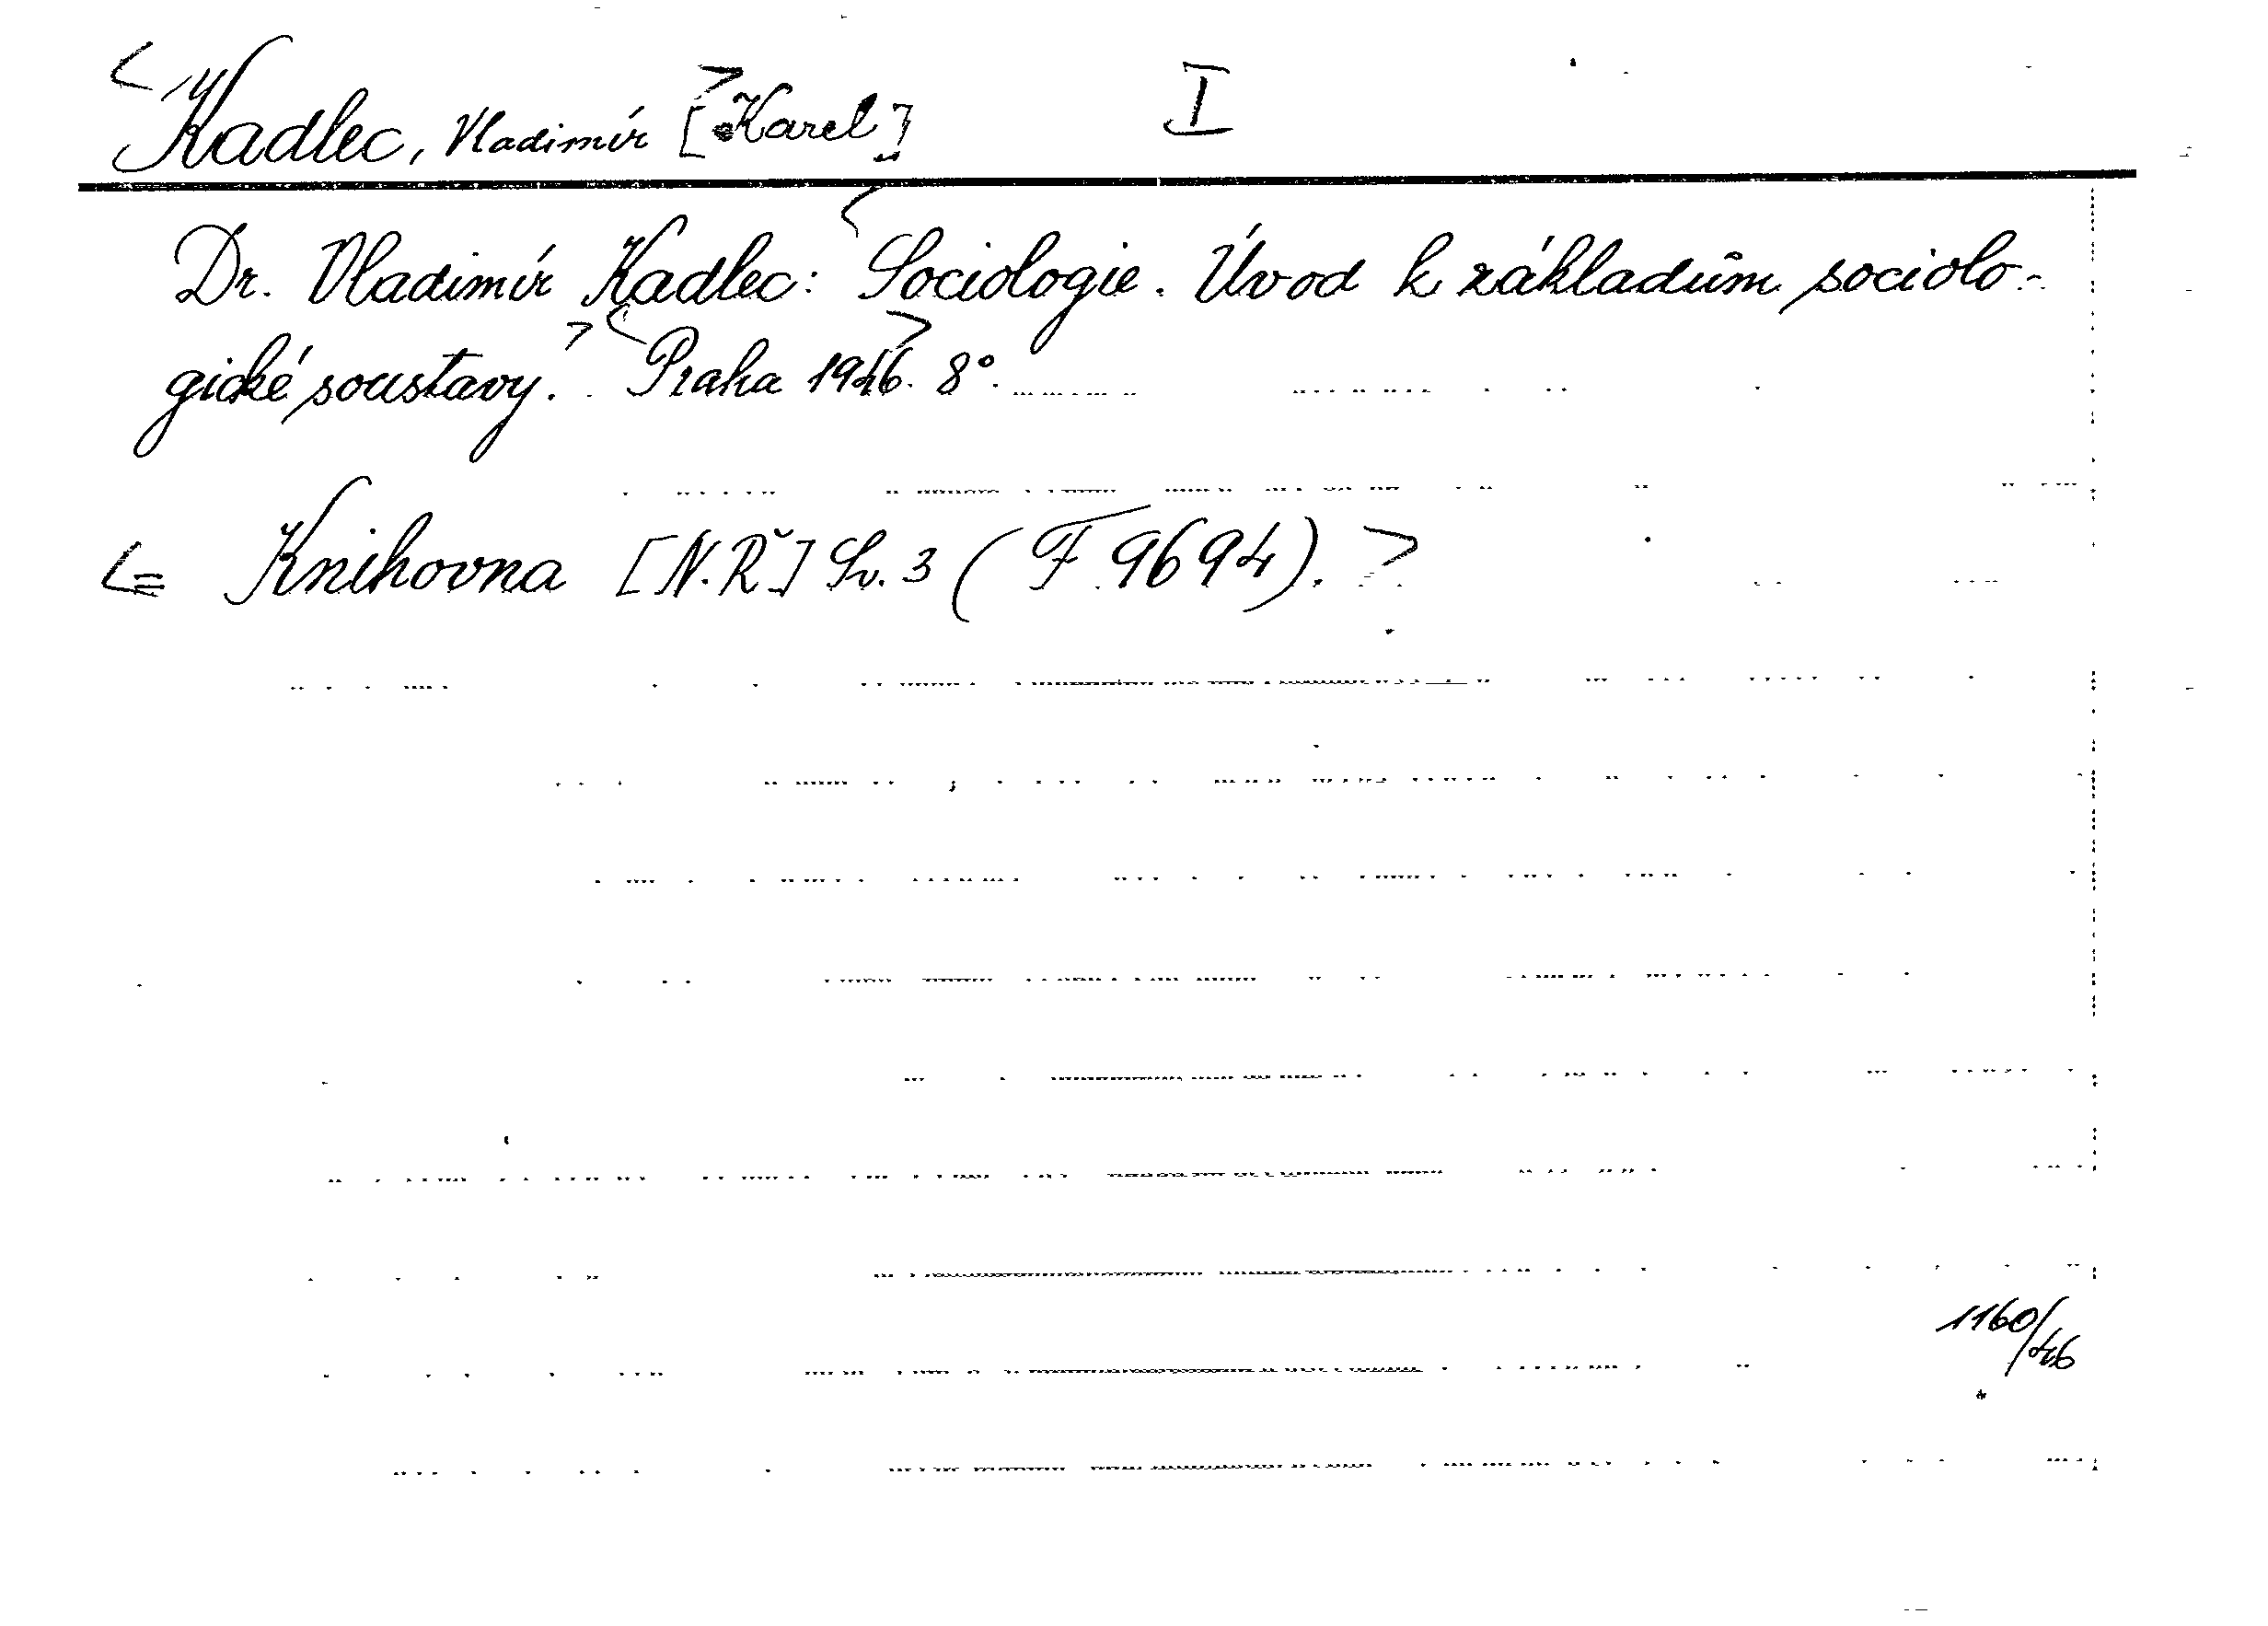 <Kadlec, Vladimír> [Karel] I
Dr. Vladimír Kadlec: <Sociologie. Úvod k základům sociolo-
gické soustavy.> <Praha 1946>. 8°.
<= Knihovna [N.Ř] Sv. 3 (F 9694).>
1160/46